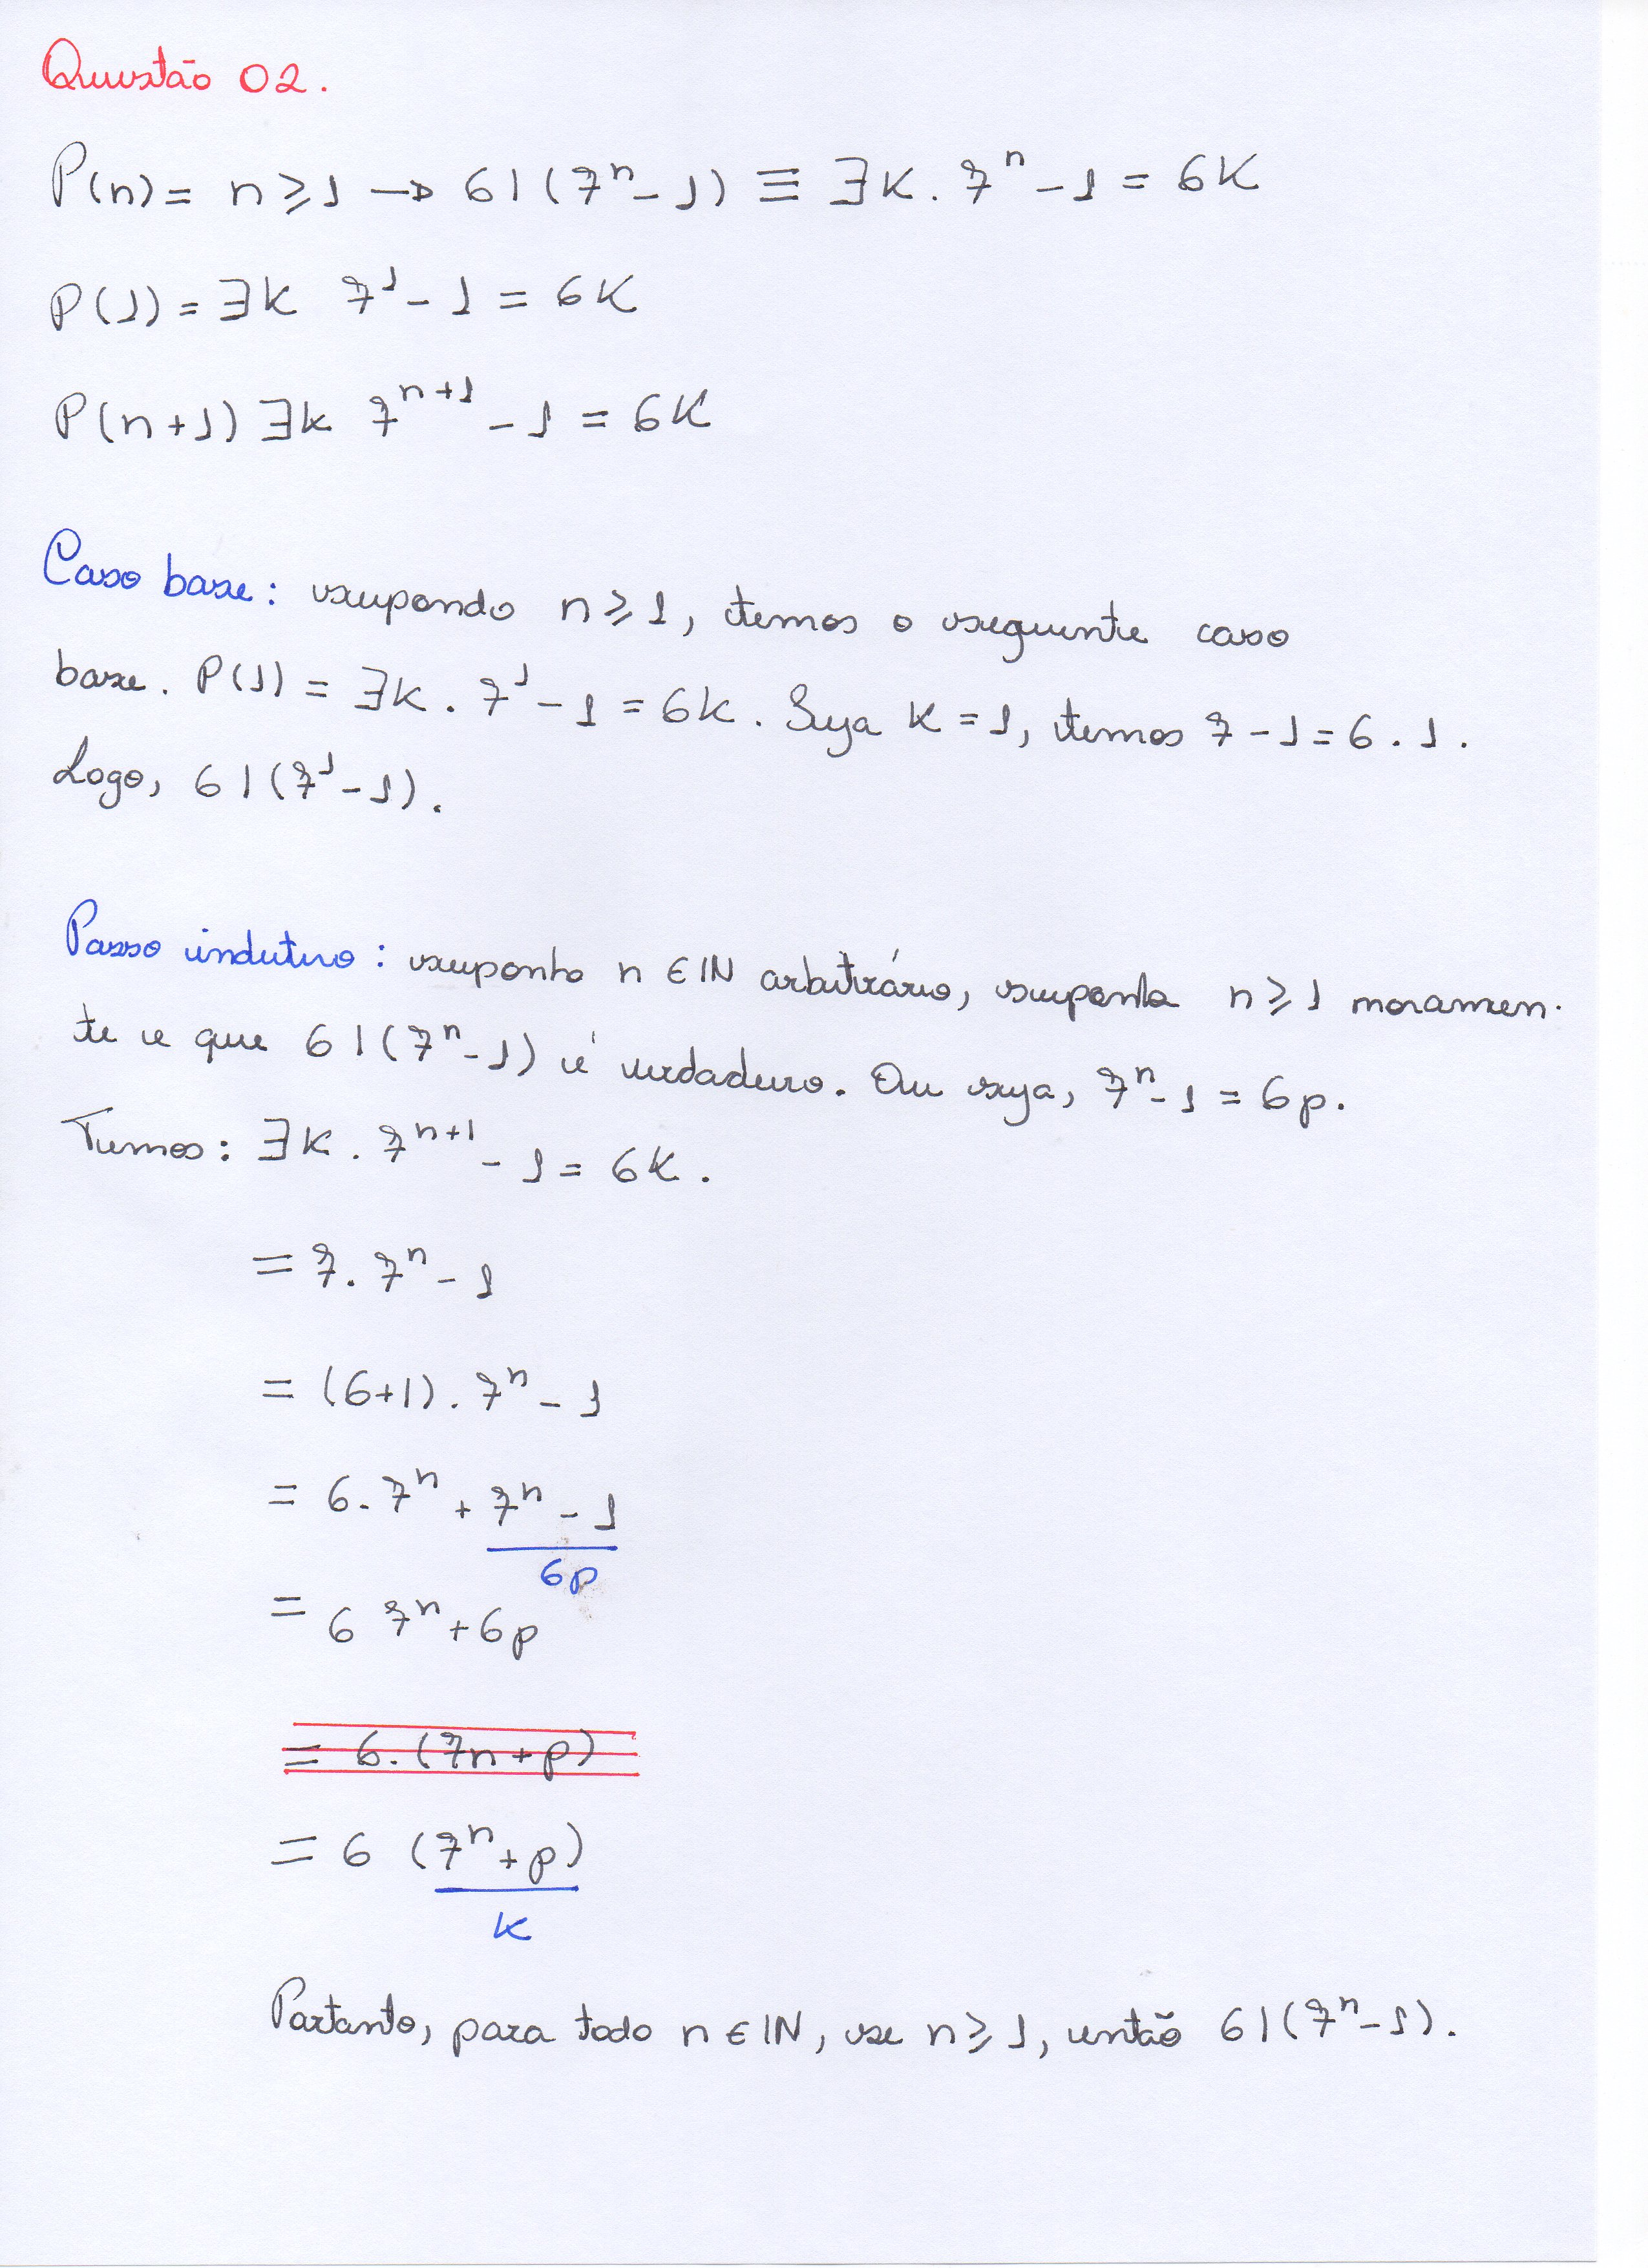 Questão 02.
P(n) = n ≥ 1 → 6 | (7ⁿ - 1) ≡ ∃k. 7ⁿ - 1 = 6k
P(1) = ∃k 7¹ - 1 = 6k
P(n+1) ∃k 7ⁿ⁺¹ - 1 = 6k
Caso base: supondo n ≥ 1, temos o seguinte caso
base. P(1) = ∃k. 7¹ - 1 = 6k. Seja k = 1, temos 7 - 1 = 6 . 1.
Logo, 6 | (7¹ - 1).
Passo indutivo: suponha n ∈ IN arbitrário, suponha n ≥ 1 novamen-
te e que 6 | (7ⁿ - 1) é verdadeiro. Ou seja, 7ⁿ - 1 = 6p.
Temos: ∃k. 7ⁿ⁺¹ - 1 = 6k.
= 7. 7ⁿ - 1
= (6+1) . 7ⁿ - 1
= 6. 7ⁿ + 7ⁿ - 1
6p
= 6 7ⁿ + 6p
= 6. (7n + p)
= 6 (7ⁿ + p)
k
Portanto, para todo n ∈ IN, se n ≥ 1, então 6 | (7ⁿ - 1).